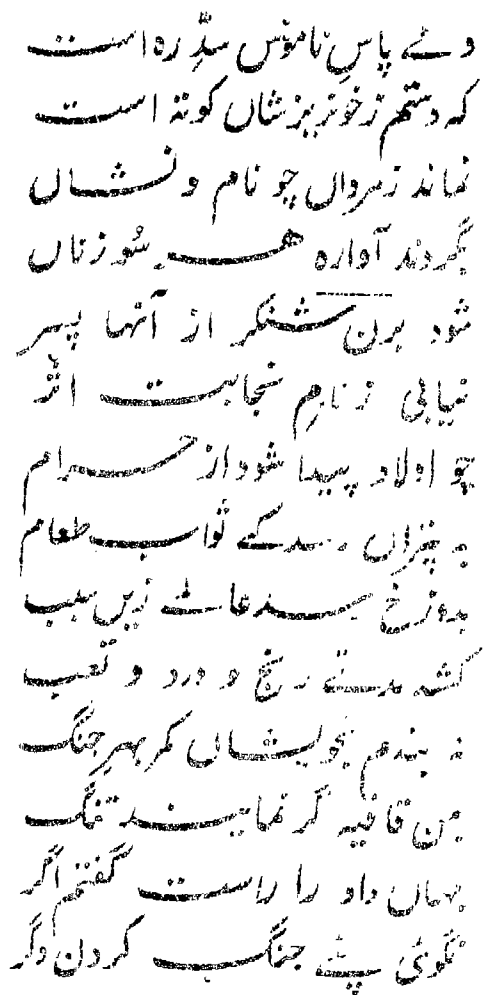 ولے پاسِ ناموس سدِّ رہ است
که دستم ز خونریزِ شاں کوتہ است
نماند ز مرداں چو نام و نشاں
بگردند آوارہ ہر سُو زناں
شود بدن شنکر از آنہا پسر
نیابی ز نام نجابت اثر
چو اولاد پیدا شود از حرام
بہ پیراں رسد کے ثواب طعام
بدوزخ رسد عالمے زیں سبب
کشد مدتے رنج و درد و تعب
نہ بندم بخویشاں کمر بہرِ جنگ
بمن قافیہ گر نمایند تنگ
بہاں داد را راست گفتم اگر
نگوئی پئے جنگ کردن دگر